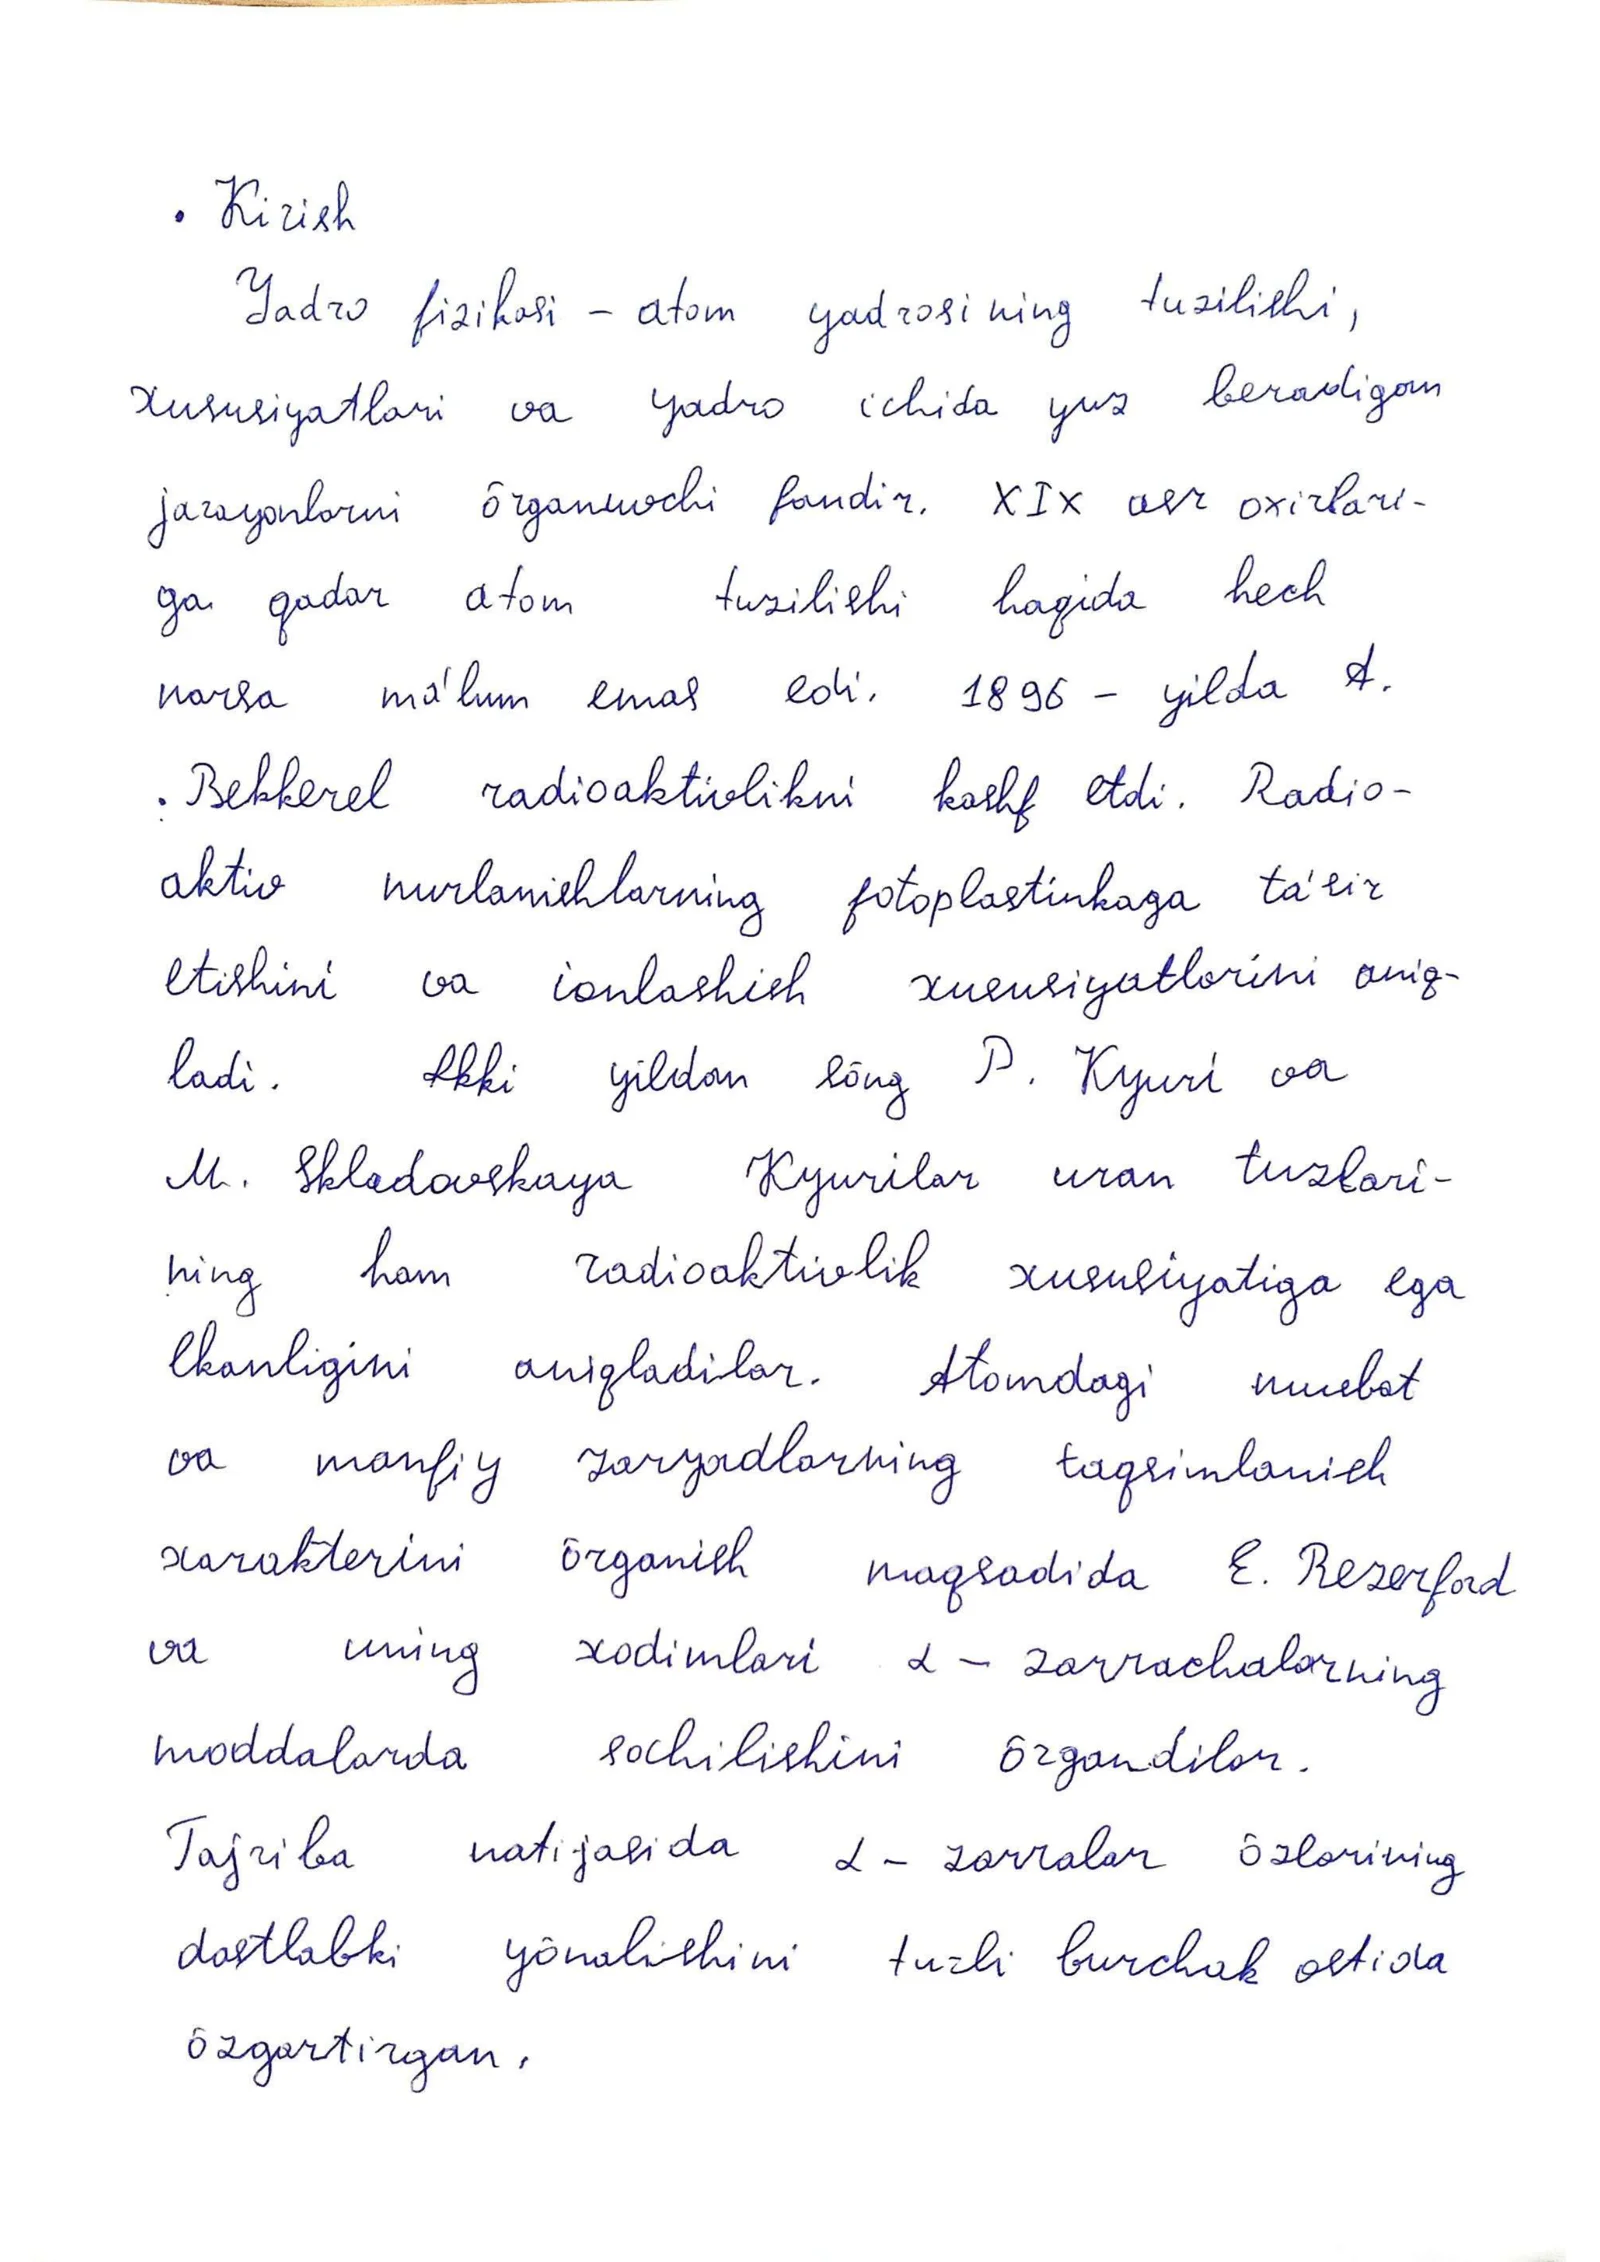 • Kirish
Yadro fizikasi – atom yadrosining tuzilishi,
xususiyatlari va yadro ichida yuz beradigan
jarayonlarni ōrganuvchi fandir. XIX asr oxirlari-
ga qadar atom tuzilishi haqida hech
narsa ma'lum emas edi. 1896 – yilda A.
. Bekkerel radioaktivlikni kashf etdi. Radio-
aktiv nurlanishlarning fotoplastinkaga ta'sir
etishini va ionlashish xususiyatlarini aniq-
ladi. Ikki yildan sōng P. Kyuri va
M. Skladovskaya Kyurilar uran tuzlari-
ning ham radioaktivlik xususiyatiga ega
ekanligini aniqladilar. Atomdagi musbat
va manfiy zaryadlarning taqsimlanish
xarakterini ōrganish maqsadida E. Rezerford
va uning xodimlari α – zarrachalarning
moddalarda sochilishini ōrgandilar.
Tajriba natijasida α – zarralar ōzlarining
dastlabki yōnalishini turli burchak ostida
ōzgartirgan.